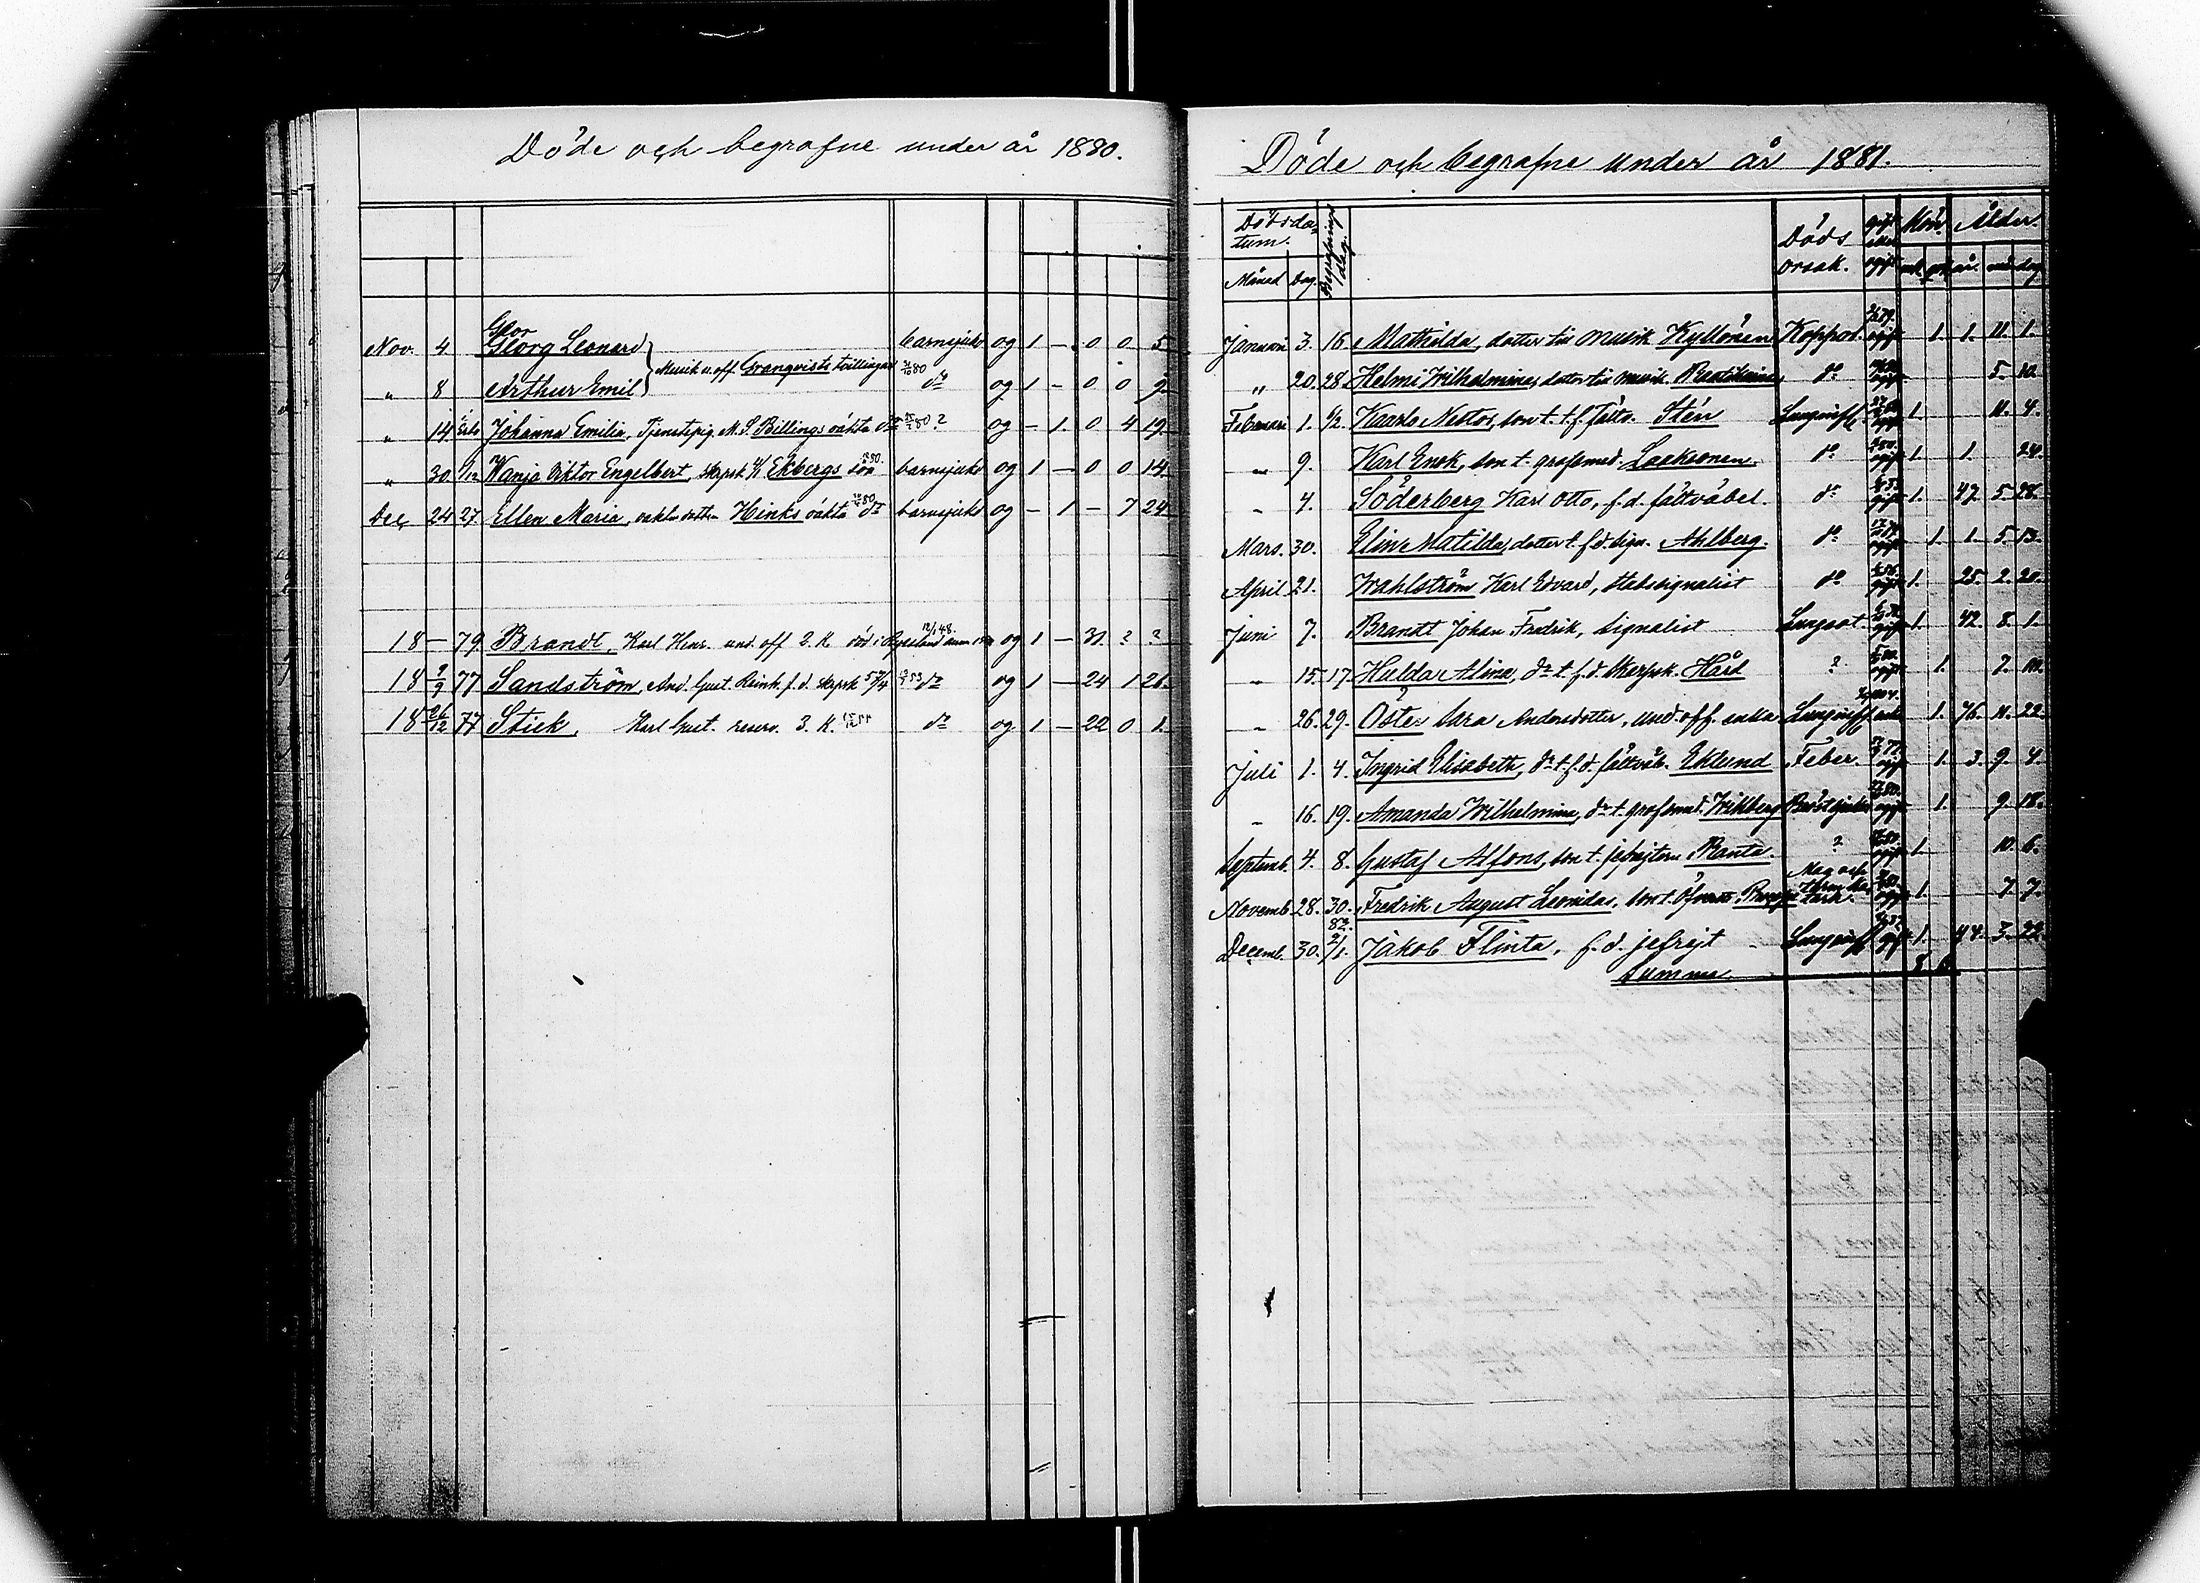 Döde och begrafne under år 1880.
Nov. 4 Georg Leonard barnsjuk og 1 — 0 0 5
Musik u. off. Granqvists tvillingar
„ 8 Arthur Emil do og 1 — 0 0 9
„ 14 Johanna Emilia, Tjenstepig. M. S. Billings oäkta dr ? og — 1. 0 4 19
„ 30 Wanja Viktor Engelbert, skarpsk Ekbergs son barnsjuk og 1 — 0 0 14
Dec 24 27 Ellen Maria, Hinks oäkta dr barnsjuk og — 1 — 7 24
18 — 79 Brandt, Karl Henr. und. off 2. K. död i Ryssland og 1 — 31 ? ?
18 9/9 77 Sandström, And. Gust. Reinh. f. d. skarpsk do og 1 — 24 1 26
18 26/12 77 Stick, Karl Gust. reserv. 3. K. do og 1 — 22 0 1.
Döde och begrafne under år 1881.
Dödsdatum. Begrafningsdag. Döds orsak. gift eller ogift Kön. Ålder.
Månad Dag. mk. qk. år. mån. dag.
Januari 3. 16. Mathilda, dotter till musik. Kyllönen Koppor. ogift 1. 1. 11. 1.
„ 20. 28. Helmi Wilhelmina, dotter till musik. do 5. 10.
Februari 1. 6/2. Kaarlo Nestor, son t. f. fältv. Stén Lunginfl. 1. 11. 4.
„ 9. Karl Enok, son t. grofsmed. Laaksonen. do 1. 1. 24.
„ 4. Söderberg Karl Otto, f. d. fältväbel. do gift 1. 47. 5. 28.
Mars. 30. Elin Matilda, dotter t. f. d. sign. Ahlberg. do ogift 1. 1. 5. 13.
April 21. Wahlström Karl Edvard, stabssignalist do 1. 25. 2. 20.
Juni 7. Brandt Johan Fredrik, signalist Lungsot. 1. 42. 8. 1.
„ 15. 17. Hulda Alina, dr t. f. d. skarpsk. Hård ? ogift 1. 7. 10.
„ 26. 29. Öster Sara Andersdotter, und. off. enka Lunginfl. enka 1. 76. 11. 22.
Juli 1. 4. Ingrid Elisabeth, dr t. f. d. fältväb. Eklund Feber. ogift 1. 3. 9. 4.
„ 16. 19. Amanda Wilhelmina, dr t. grofsmed. Wikberg Bröstsjukd. ogift 1. 9 18.
Septemb. 4. 8. Gustaf Alfons, son t. jefrejtern Ranta. ? ogift 1. 10. 6.
Novemb. 28. 30. Fredrik August Leonidas, son t. Öfverste Mag och tarmkatarrh. ogift 1. 7. 7.
Decemb. 30. 82. 2/1. Jakob Flinta, f. d. jefrejt Lunginfl gift 1. 44. 3. 22
Summa 8. 6.